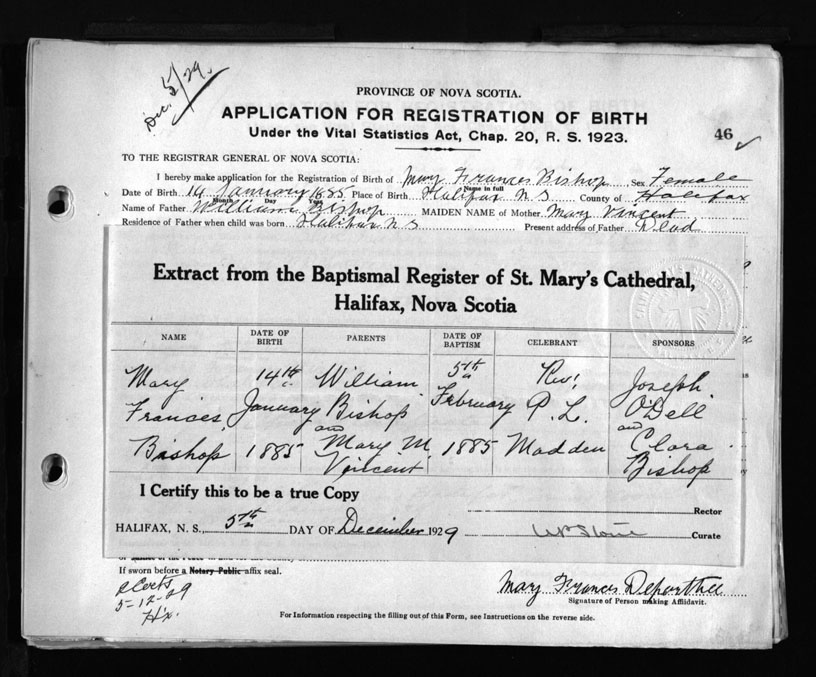 Dec. 5/29.
PROVINCE OF NOVA SCOTIA.
APPLICATION FOR REGISTRATION OF BIRTH
Under the Vital Statistics Act, Chap. 20, R. S. 1923.
46
TO THE REGISTRAR GENERAL OF NOVA SCOTIA:
I hereby make application for the Registration of Birth of Mary Frances Bishop Sex Female
Name in full
Date of Birth 14 January 1885 Place of Birth Halifax N S County of Halifax
Month Day Year
Name of Father William Bishop MAIDEN NAME of Mother Mary Vincent
Residence of Father when child was born Halifax N S Present address of Father Dead
Extract from the Baptismal Register of St. Mary's Cathedral,
Halifax, Nova Scotia
NAME DATE OF BIRTH PARENTS DATE OF BAPTISM CELEBRANT SPONSORS
Mary 14th William 5th Rev. Joseph
Frances January Bishop February P. L. O'Dell
and and
Bishop 1885 Mary M 1885 Madden Clara
Vincent Bishop
I Certify this to be a true Copy
Rector
HALIFAX, N. S., 5th DAY OF December 1929 Curate
If sworn before a Notary Public affix seal.
5-12-29
Hx.
Mary Frances
Signature of Person making Affidavit.
For Information respecting the filling out of this Form, see Instructions on the reverse side.